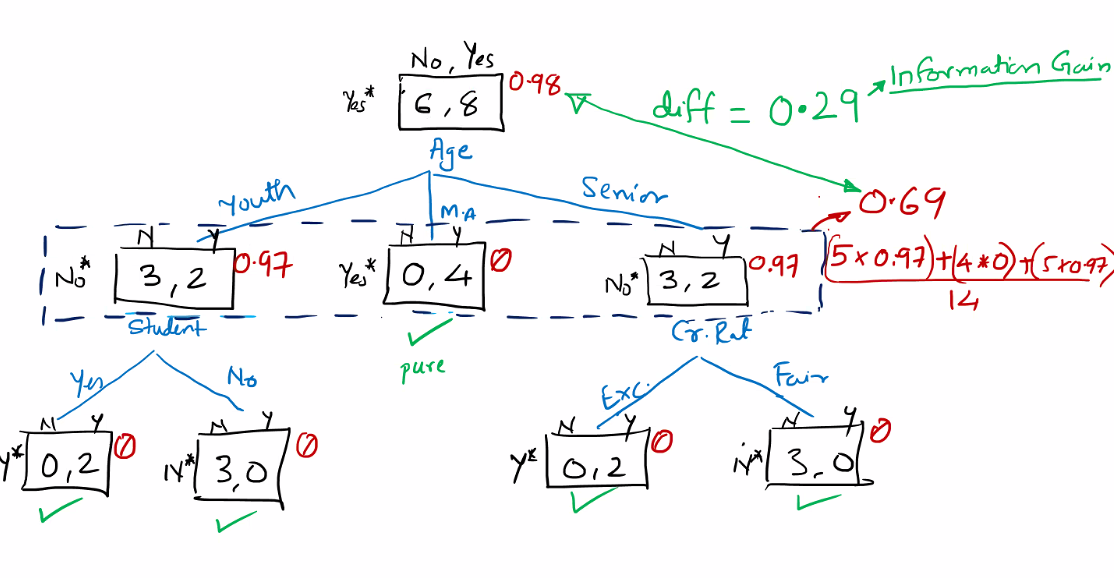 No, Yes
Yes* 6, 8 0.98
diff = 0.29
Information Gain
Age
Youth
M.A
Senior
0.69
N Y
No* 3, 2 0.97
N Y
Yes* 0, 4 0
N Y
No* 3, 2 0.97
(5 x 0.97)+(4 * 0)+(5x0.97)
14
Student
pure
Cr. Rat
Yes
No
Exc.
Fair
N Y
Y* 0, 2 0
N Y
N* 3, 0 0
N Y
Y* 0, 2 0
N Y
N* 3, 0 0